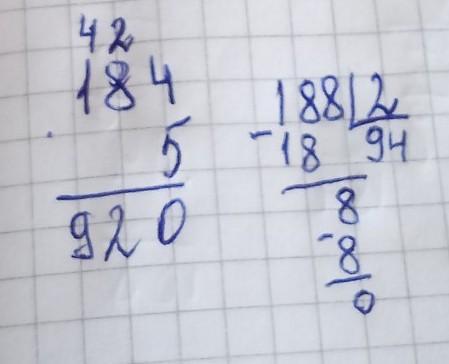 42
184
· 5
920
188 2
- 18 94
8
- 8
0